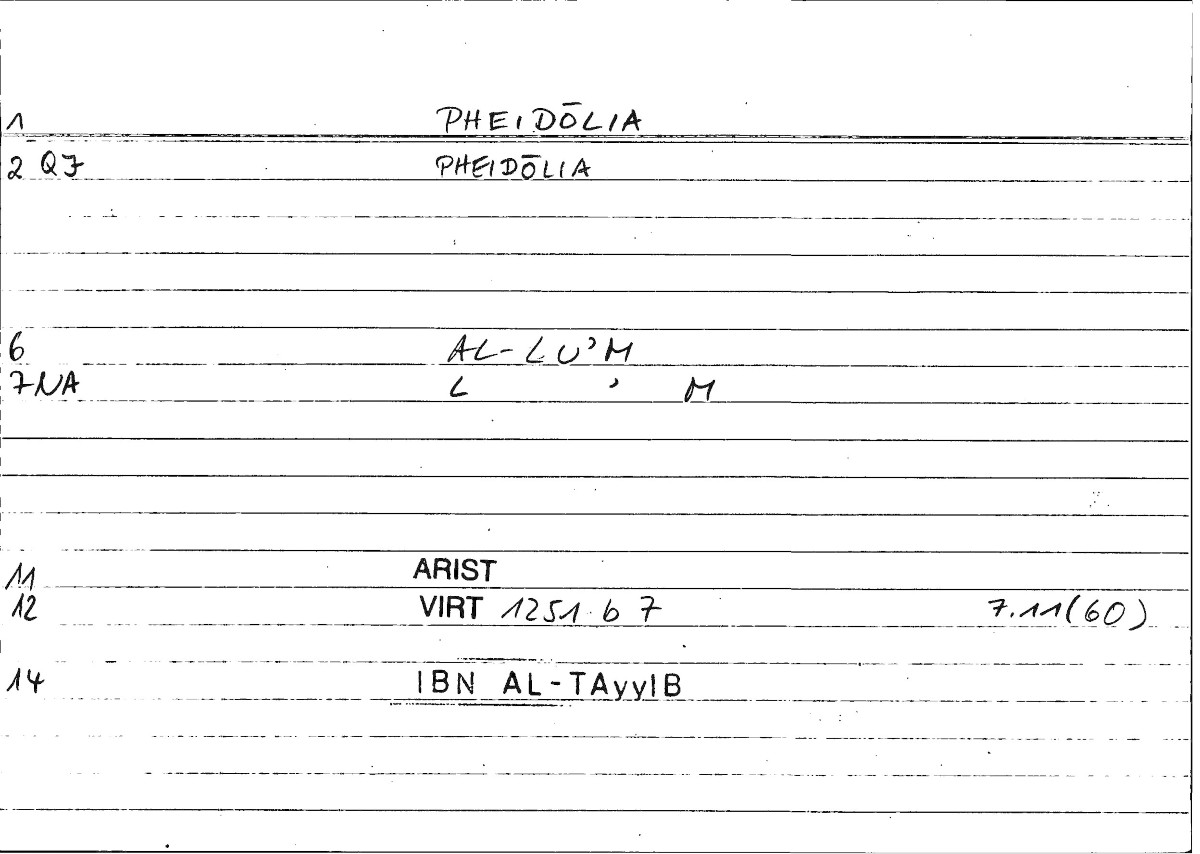 1 PHEIDŌLIA
2 QF PHEIDŌLIA
6 AL-LU'M
7NA L ' M
11 ARIST
12 VIRT 1251 b 7 7.11(60)
14 IBN AL-TAyyIB